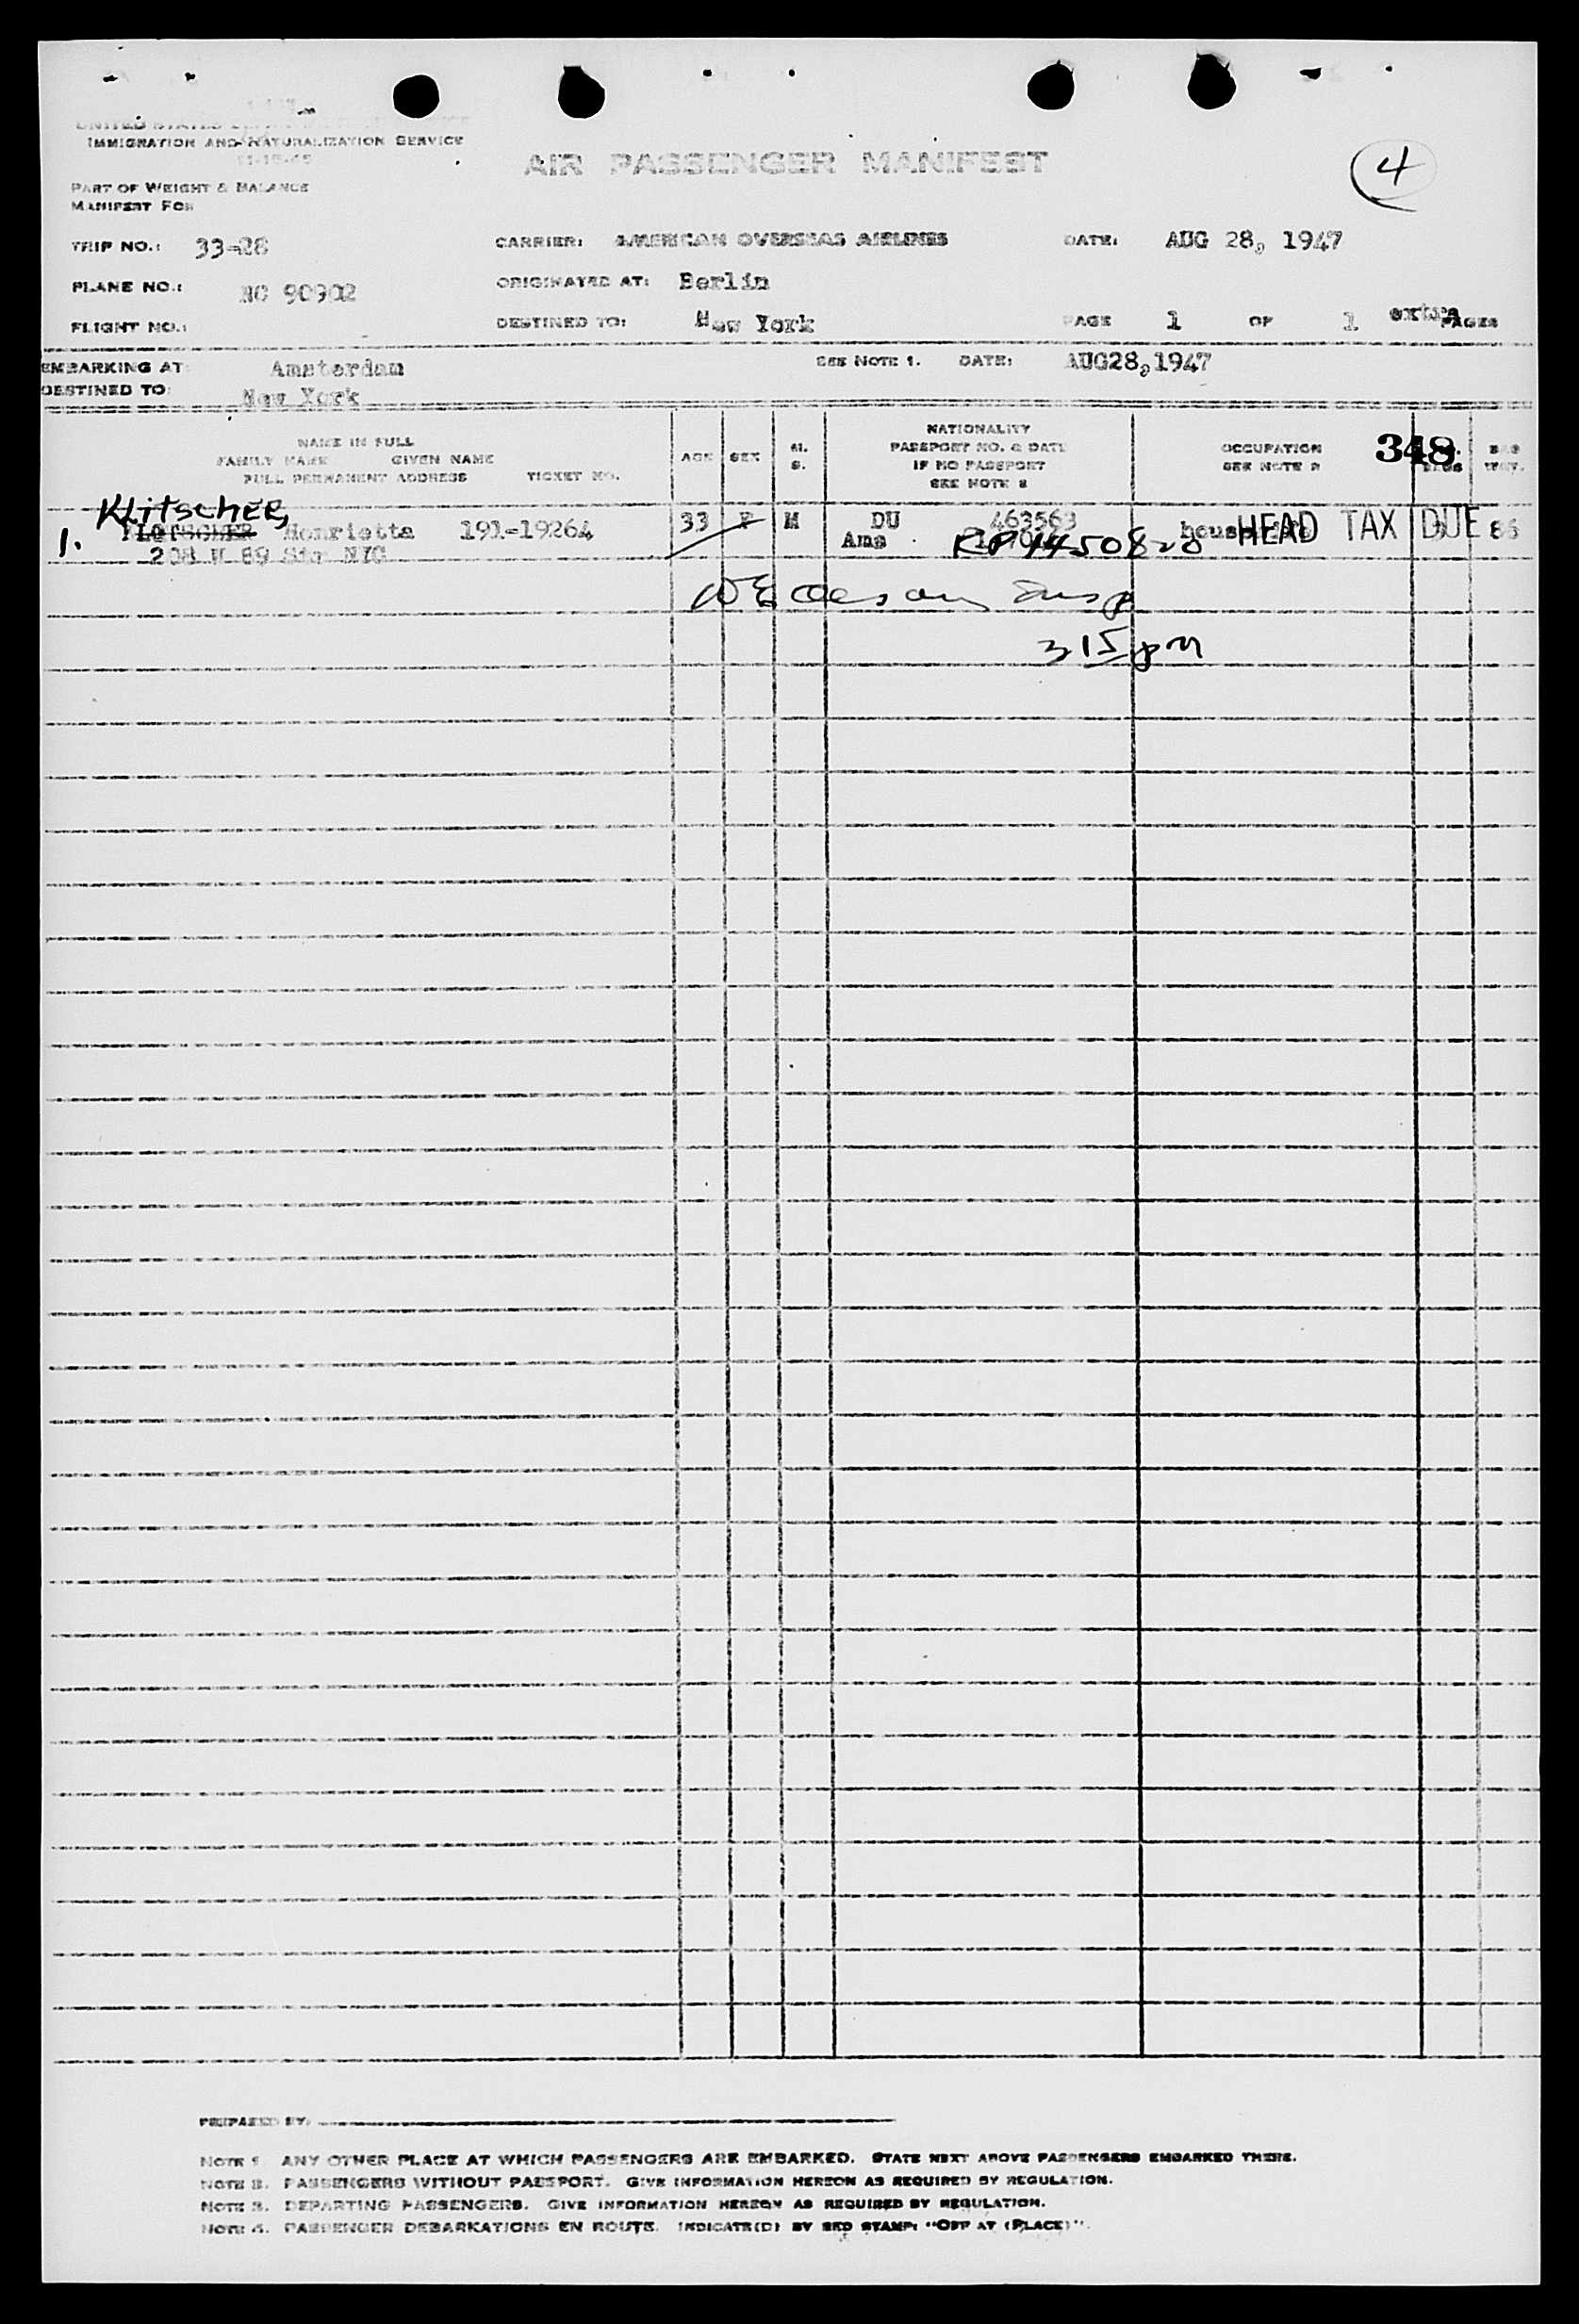 UNITED STATES
IMMIGRATION AND NATURALIZATION SERVICE
AIR PASSENGER MANIFEST
4
PART OF WEIGHT & BALANCE
MANIFEST FOR
TRIP NO.: 33-28 CARRIER: AMERICAN OVERSEAS AIRLINES DATE: AUG 28, 1947
PLANE NO.: NC 90902 ORIGINATED AT: Berlin
FLIGHT NO.: DESTINED TO: New York PAGE 1 OF 1 extra PAGES
EMBARKING AT: Amsterdam SEE NOTE 1. DATE: AUG28,1947
DESTINED TO: New York
NAME IN FULL
FAMILY NAME GIVEN NAME
FULL PERMANENT ADDRESS TICKET NO.
AGE SEX M. S.
NATIONALITY
PASSPORT NO. & DATE
IF NO PASSPORT
SEE NOTE 2
OCCUPATION
SEE NOTE 2
348
BAG WGT.
Klitscher,
1. Henrietta 191-19264 33 F M DU 463563 HEAD TAX DUE 86
208 W 89 Str NYC Ams RP 1450828
Insp
315 pm
PREPARED BY:
NOTE 1. ANY OTHER PLACE AT WHICH PASSENGERS ARE EMBARKED. STATE NEXT ABOVE PASSENGERS EMBARKED THERE.
NOTE 2. PASSENGERS WITHOUT PASSPORT. GIVE INFORMATION HEREON AS REQUIRED BY REGULATION.
NOTE 3. DEPARTING PASSENGERS. GIVE INFORMATION HEREON AS REQUIRED BY REGULATION.
NOTE 4. PASSENGER DEBARKATIONS EN ROUTE. INDICATE(D) BY RED STAMP: "OFF AT (PLACE)".